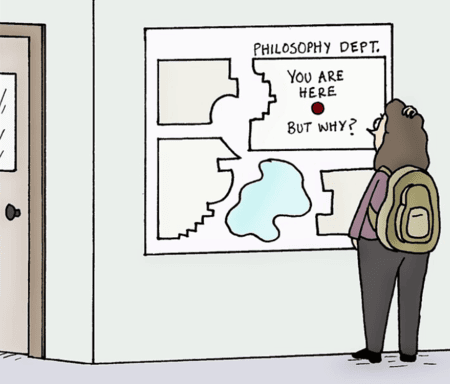 PHILOSOPHY DEPT.
YOU ARE
HERE
BUT WHY?